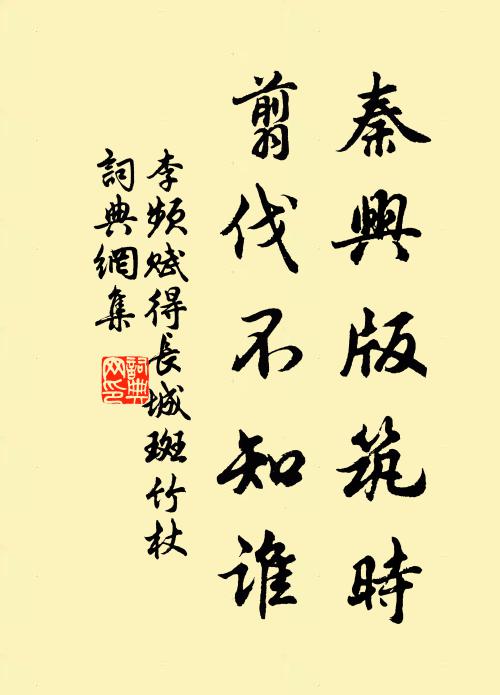 秦興版筑時
翦伐不知誰
李頻賦得長城斑竹杖
詞典網集
詞典
网印